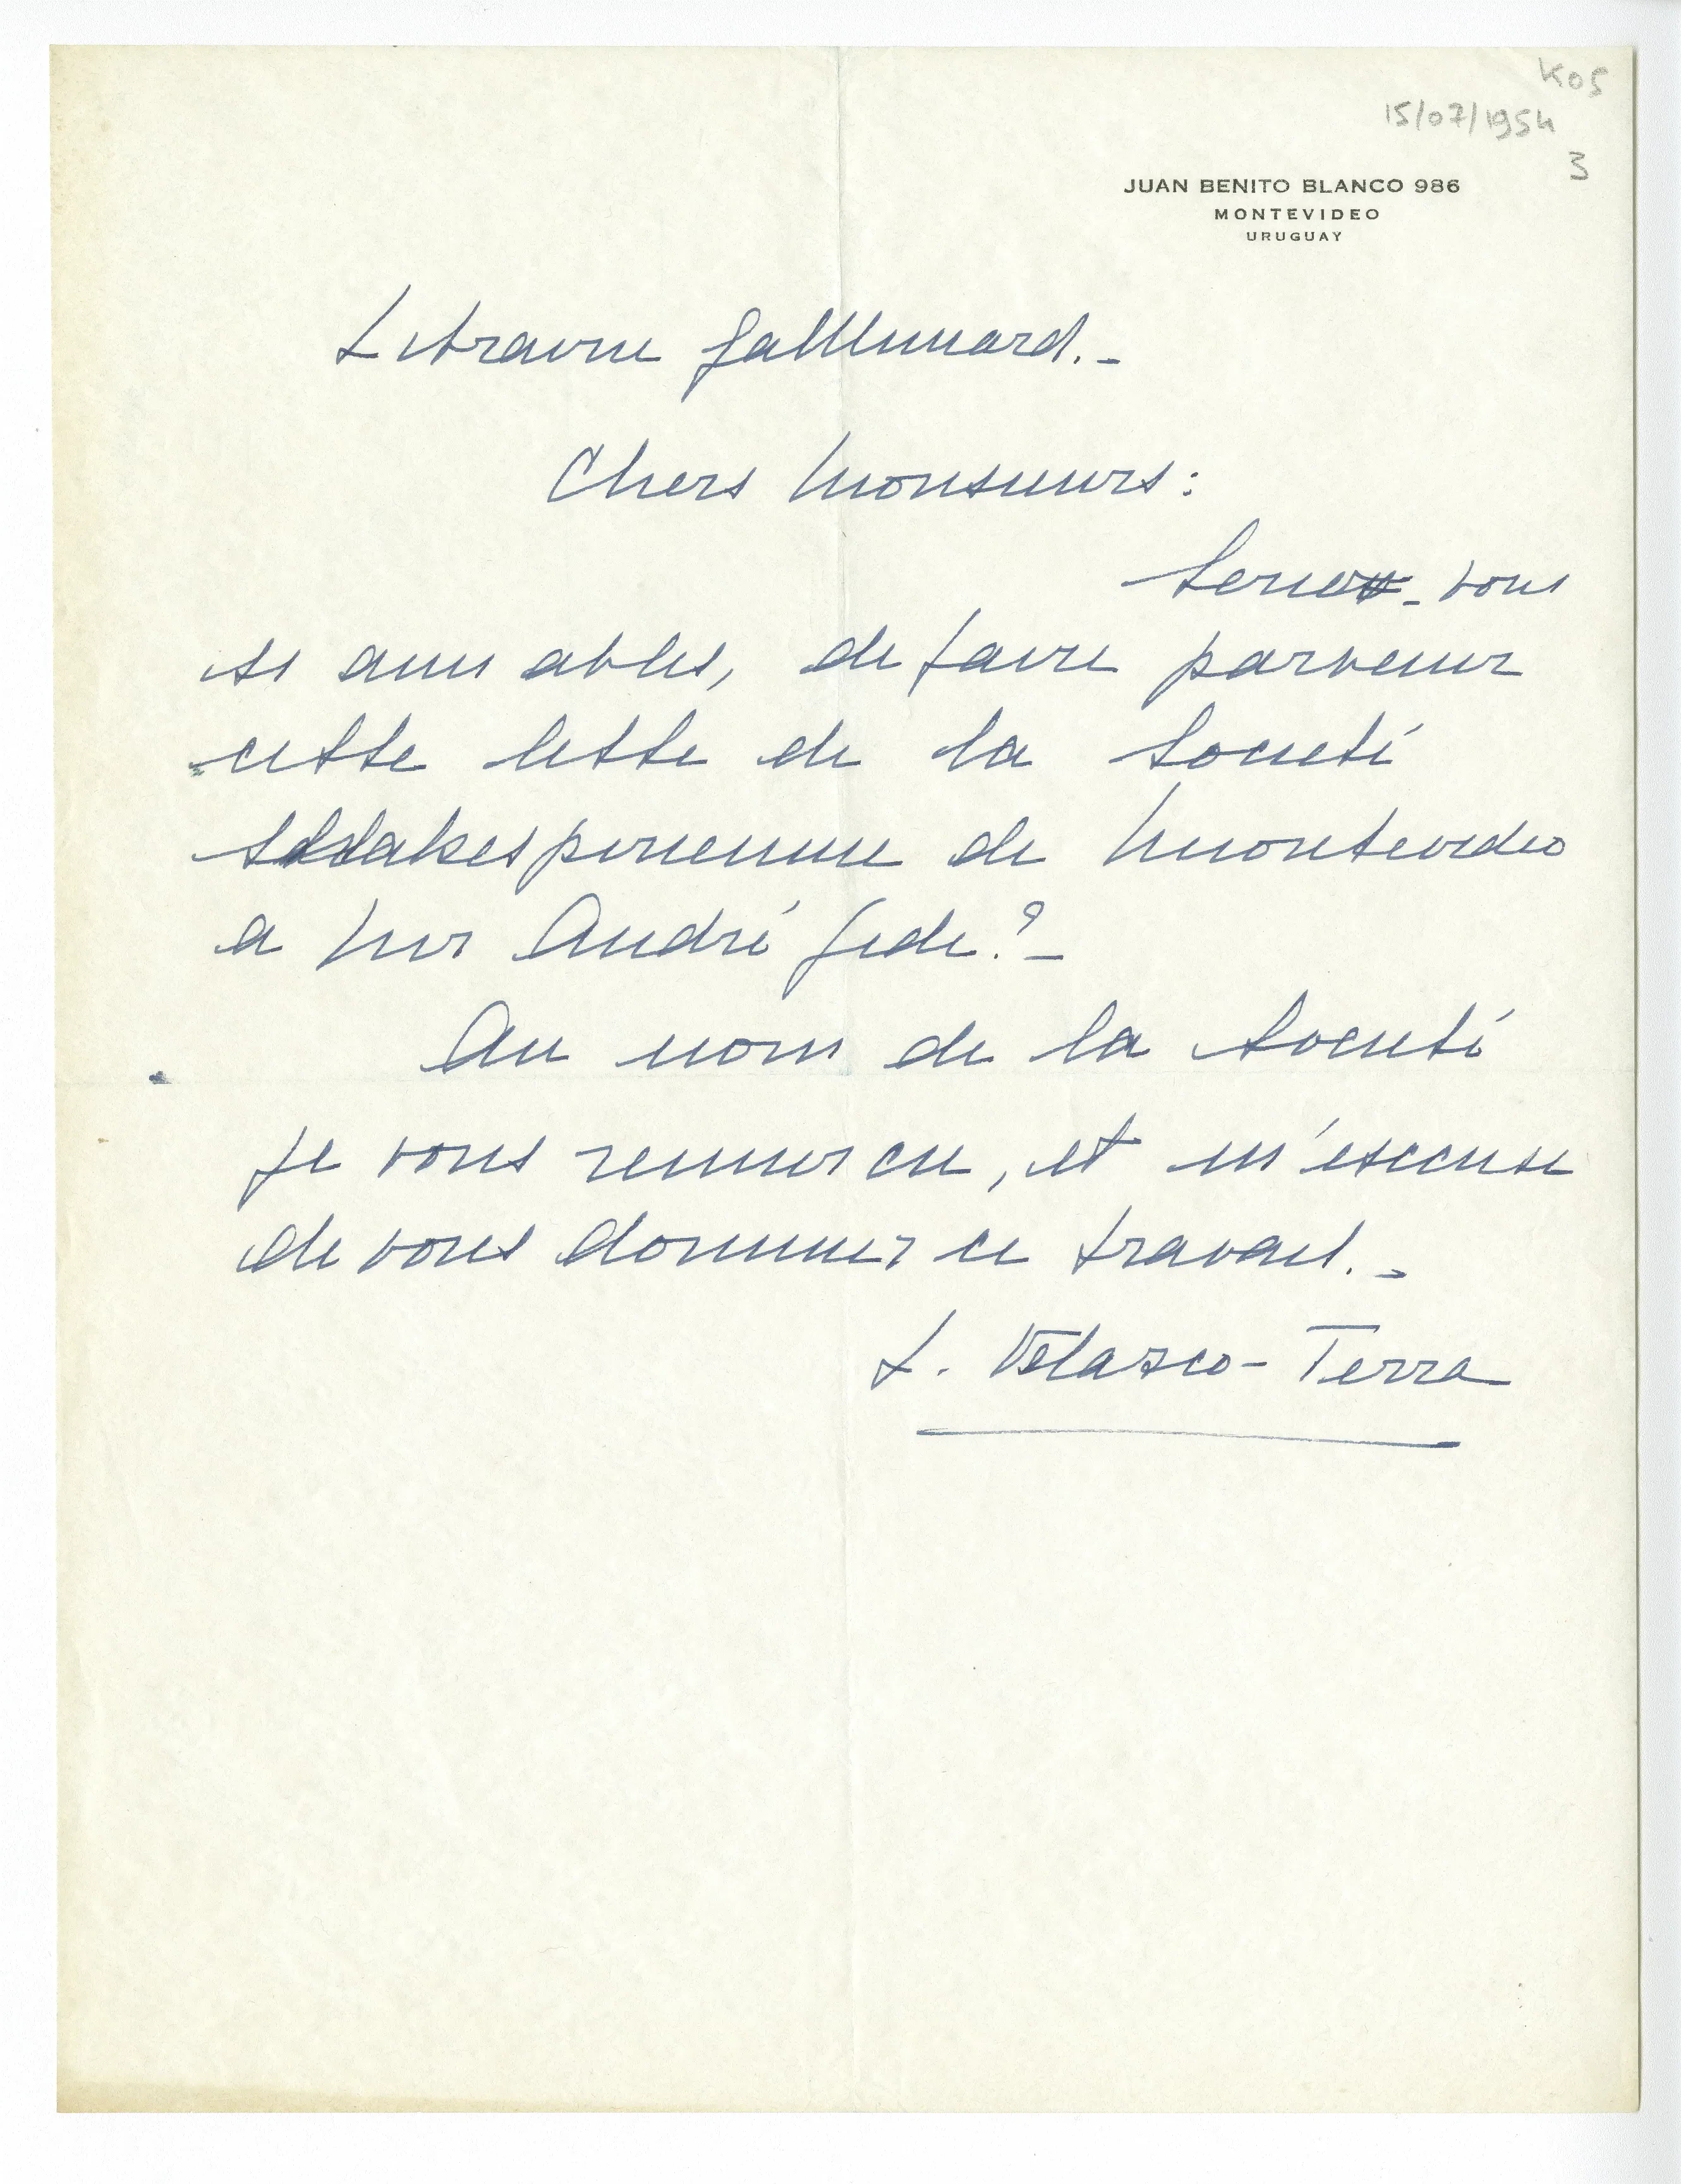 K05
15/07/1954
3
JUAN BENITO BLANCO 986
MONTEVIDEO
URUGUAY
Librairie Gallimard.-
Chers Monsieurs:
Seriez-vous
si aimables, de faire parvenir
cette lettre de la Societé
Shakespirienne de Montevideo
a Mr André Gide?-
Au nom de la Societé
je vous remercie, et m'excuse
de vous donner ce travail.-
L. Velazco-Terra